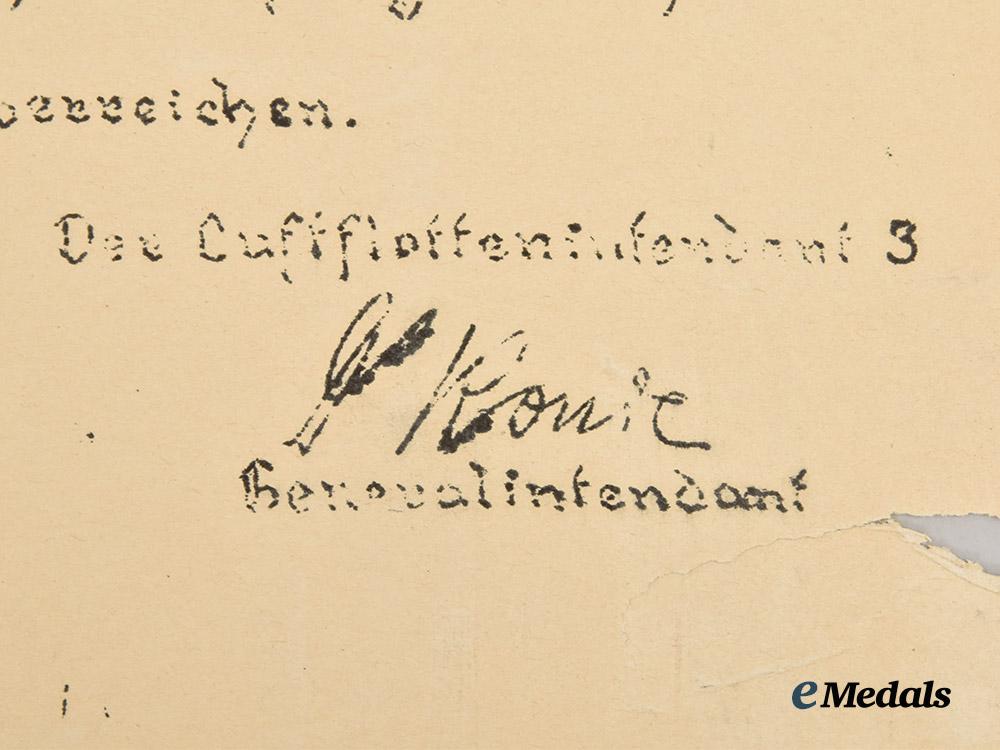 berreichen.
Der Luftflottenintendant 3
Generalintendant
eMedals